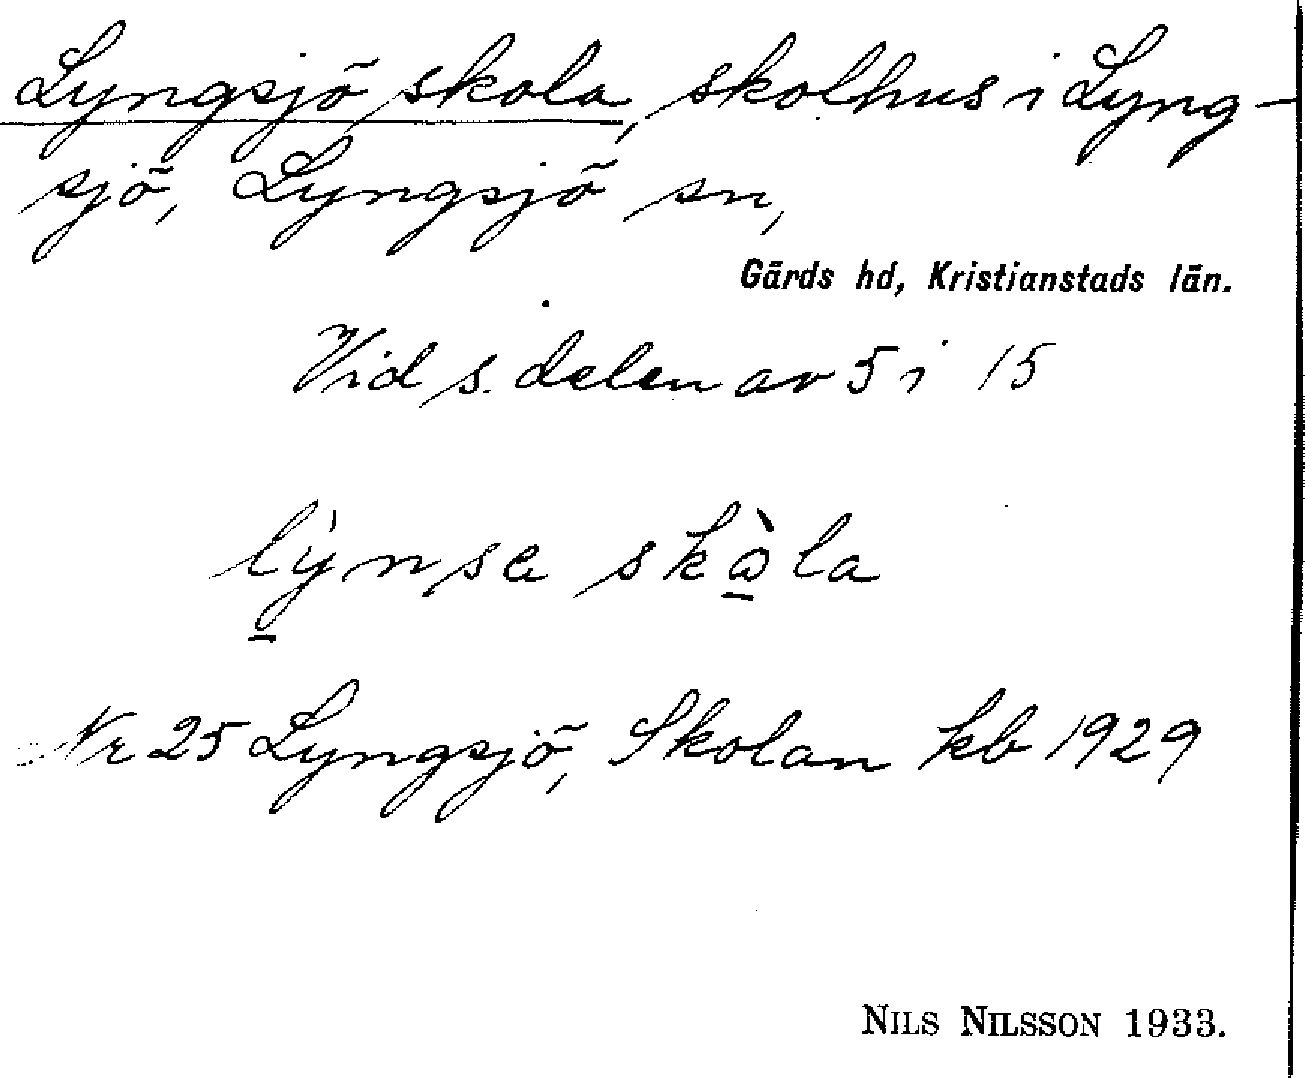 Lyngsjö skola, skolhus i Lyng-
sjö, Lyngsjö sn,
Gärds hd, Kristianstads län.
Vid s. delen av 5 i 15
lỳnsa skàla
Nr 25 Lyngsjö, Skolan kb 1929
NILS NILSSON 1933.